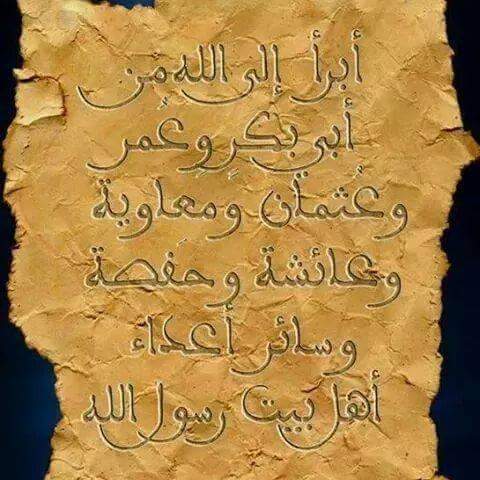 أبرأ إلى الله من
أبي بكرٍ وعُمر
وعُثمان ومعاوية
وعائشة وحَفصة
وسائر أعداء
أهل بيت رسول الله